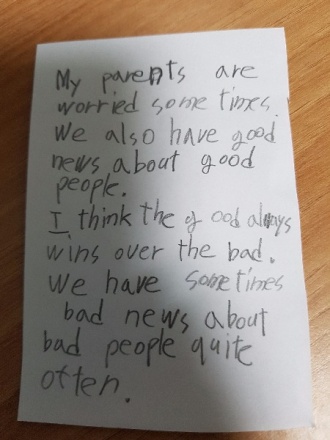 My parents are
worried some times.
We also have good
news about good
people.
I think the good always
wins over the bad.
We have sometimes
bad news about
bad people quite
often.